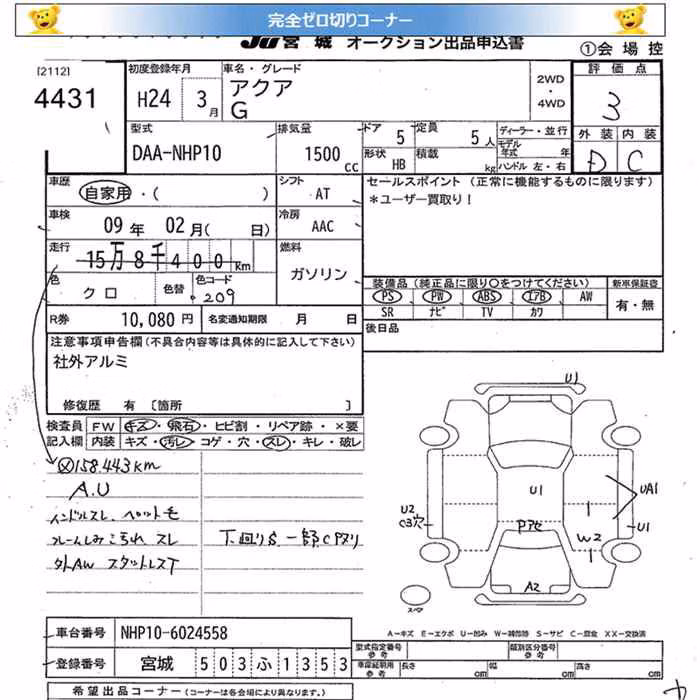 完全ゼロ切りコーナー
JU宮城 オークション出品申込書
①会場控
[2112]
4431
初度登録年月
H24 3月
車名・グレード
アクア
G
2WD
・
4WD
評価点
3
外装 内装
D C
型式
DAA-NHP10
排気量
1500cc
ドア 5
定員 5人
形状 HB
積載 kg
ディーラー・並行
モデル年式 年
ハンドル 左・右
車歴 自家用・( )
シフト AT
車検 09年 02月( 日)
冷房 AAC
走行 15万8千400km
燃料 ガソリン
色 クロ 色替 色コード 209
R券 10,080円 名変通知期限 月 日
セールスポイント (正常に機能するものに限ります)
*ユーザー買取り!
装備品(純正品に限り○をつけてください) 新車保証書
PS PW ABS エアB AW 有・無
SR ナビ TV カワ
後日品
注意事項申告欄(不具合内容等は具体的に記入して下さい)
社外アルミ
修復歴 有 [箇所 ]
検査員記入欄
FW キズ・飛石・ヒビ割・リペア跡・×要
内装 キズ・汚レ・コゲ・穴・スレ・キレ・破レ
158.443km
A.U
ハンドルスレ、ペット毛
フレームしみこぢれ スレ
外AW スタットレスT
下回りS 一部Cアリ
U1
U1
UA1
U2
C3穴
U1
W2
A2
スペア
A-キズ E-エクボ U-凹み W-補修跡 S-サビ C-腐食 XX-交換済
車台番号 NHP10-6024558
登録番号 宮城 503ふ1353
型式指定番号 参考
類別区分番号 参考
車庫証明用 参考 長さ cm 幅 cm 高さ cm
希望出品コーナー(コーナーは各会場により異なります。)